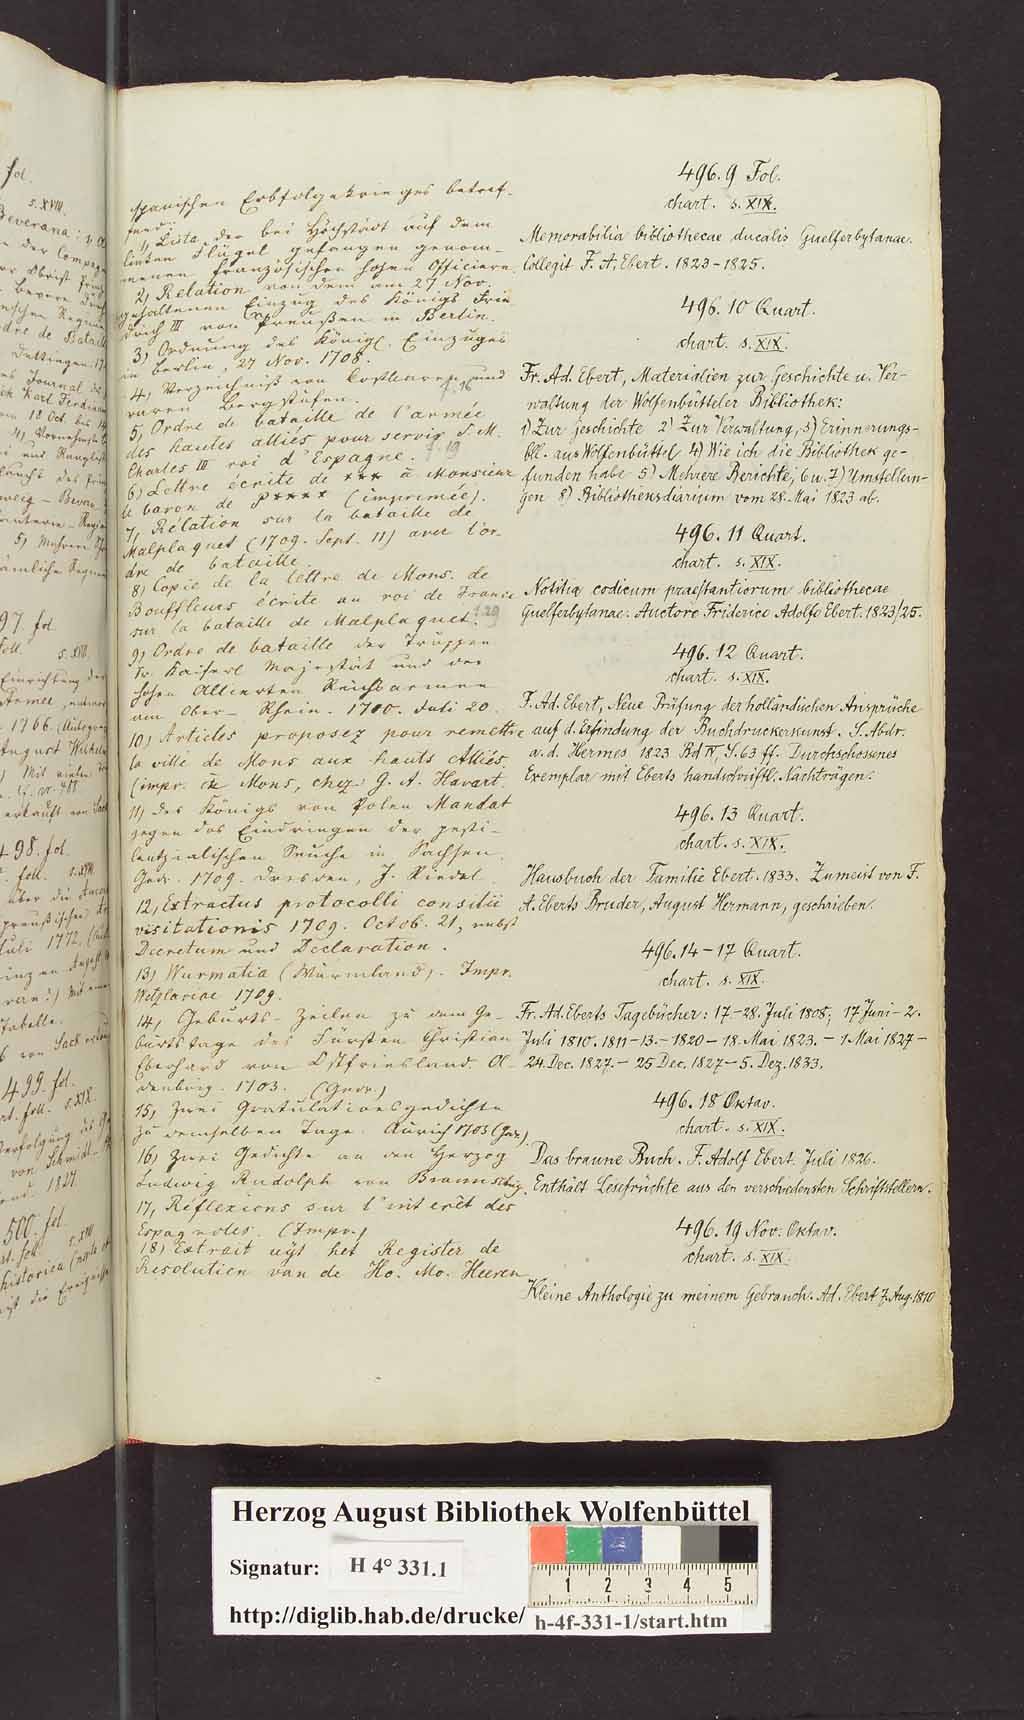 fol.
s. XVIII.
Beverana: 1)
497. fol
498. fol.
499. fol.
500. fol.
spanischen Erbfolgekrieges betref-
fend:
1, Liste der bei Höchstädt auf dem
linken Flügel gefangen genom-
menen französischen hohen Officiere.
2, Relation von dem am 27 Nov.
gehaltenen Einzug des Königs Frie
drich III von Preußen in Berlin.
3, Ordnung des Königl. Einzuges
in Berlin, 27 Nov. 1708.
4, Verzeichniß von Costbaren und
raren Bergstufen. f. 16
5, Ordre de bataille de l'armée
des hautes alliés pour servir S. M.
Charles III roi d'Espagne. f. 19
6, Lettre écrite de *** à Monsieur
le baron de P**** (imprimée).
7, Rélation sur la bataille de
Malplaquet (1709. Sept. 11) avec l'or-
dre de bataille.
8, Copie de la lettre de Mons. de
Bouffleurs écrite au roi de France
sur la bataille de Malplaquet. f. 29
9, Ordre de bataille der Truppen
Sr. Kaiserl Majestät und der
hohen Allierten Reichsarmee
am Ober-Rhein. 1710. Juli 20.
10, Articles proposez pour remettre
la ville de Mons aux hauts Alliés.
(impr. à Mons, chez G. A. Havart.
11, des Königs von Polen Mandat
gegen das Eindringen der pesti-
lentzialischen Seuche in Sachsen.
Gedr. 1709. Dresden, J. Riedel.
12, Extractus protocolli consilii
visitationis 1709. Octob. 21, nebst
Decretum und Declaration.
13, Wurmatia (Wurmland). Impr.
Wetzlariae 1709.
14, Geburts-Zeilen zu dem Ge-
burtstage des Fürsten Christian
Eberhard von Ostfriesland. Ol-
denburg. 1703. (Gedr.)
15, Zwei Gratulationsgedichte
zu demselben Tage. Aurich 1703 (Gedr.)
16, Zwei Gedichte an den Herzog
Ludwig Rudolph von Braunschwg.
17, Réflexions sur l'interêt des
Espagnoles. (Impr.)
18, Extrait uyt het Register de
Resolutien van de Ho. Mo. Heeren
496. 9 Fol.
chart. s. XIX.
Memorabilia bibliothecae ducalis Guelferbytanae.
Collegit F. A. Ebert. 1823-1825.
496. 10 Quart.
chart. s. XIX.
Fr. Ad. Ebert, Materialien zur Geschichte u. Ver-
waltung der Wolfenbütteler Bibliothek:
1) Zur Geschichte 2) Zur Verwaltung, 3) Erinnerungs-
bll. aus Wolfenbüttel 4) Wie ich die Bibliothek ge-
funden habe 5) Mehrere Berichte, 6 u. 7) Umstellun-
gen 8) Bibliotheksdiarium vom 28. Mai 1823 ab.
496. 11 Quart.
chart. s. XIX.
Notitia codicum praestantiorum bibliothecae
Guelferbytanae. Auctore Friderico Adolfo Ebert. 1823/25.
496. 12 Quart.
chart. s. XIX.
F. Ad. Ebert, Neue Prüfung der holländischen Ansprüche
auf d. Erfindung der Buchdruckerkunst. S. Abdr.
a. d. Hermes 1823 Bd IV, S. 63 ff. Durchschossenes
Exemplar mit Eberts handschriftl. Nachträgen.
496. 13 Quart.
chart. s. XIX.
Hausbuch der Familie Ebert. 1833. Zumeist von F.
A. Eberts Bruder, August Hermann, geschrieben.
496. 14-17 Quart.
chart. s. XIX.
Fr. Ad. Eberts Tagebücher: 17-28. Juli 1808; 17 Juni-2.
Juli 1810. 1811-13.-1820-18. Mai 1823. - 1 Mai 1827-
24. Dec. 1827.- 25 Dec. 1827-5. Dez. 1833.
496. 18 Oktav.
chart. s. XIX.
Das braune Buch. F. Adolf Ebert. Juli 1826.
Enthält Lesefrüchte aus den verschiedensten Schriftstellern.
496. 19 Nov. Oktav.
chart. s. XIX.
Kleine Anthologie zu meinem Gebrauch. Ad. Ebert 7. Aug. 1810
Herzog August Bibliothek Wolfenbüttel
Signatur: H 4° 331.1
1 2 3 4 5
http://diglib.hab.de/drucke/ h-4f-331-1/start.htm